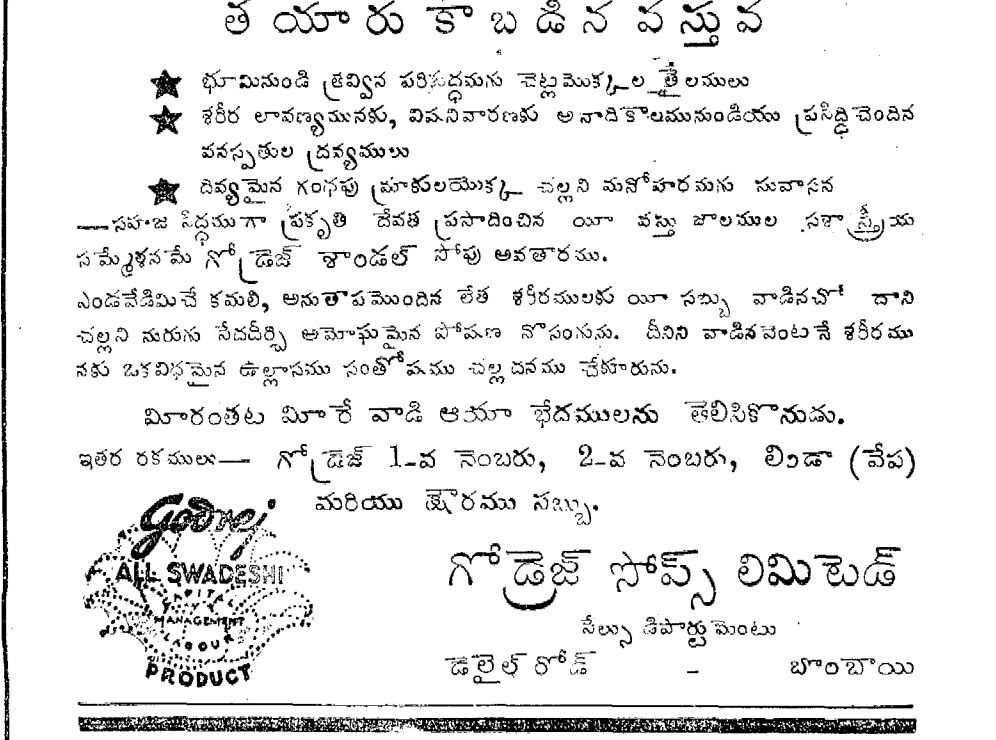 తయారుకాబడిన వస్తువ
★ భూమినుండి త్రవ్విన పరిశుద్ధమను చెట్లమొక్కల తైలములు
★ శరీర లావణ్యమునకు, విషనివారణకు అనాదికాలమునుండియు ప్రసిద్ధిచెందిన
వనస్పతుల ద్రవ్యములు
★ దివ్యమైన గంనపు మ్రాకులయొక్క చల్లని మనోహరమను సువాసన
—సహజ సిద్ధముగా ప్రకృతి దేవత ప్రసాదించిన యీ వస్తు జాలముల సశాస్త్రీయ
సమ్మేళనమే గోద్రెజ్ శాండల్ సోపు అవతారము.
ఎండవేడిమిచే కమలి, అనుతాపమొందిన లేత శరీరములకు యీ సబ్బు వాడినచో దాని
చల్లని నురుగు సేదదీర్చి అమోఘమైన పోషణ నొసంగును. దీనిని వాడినవెంటనే శరీరము
నకు ఒకవిధమైన ఉల్లాసము సంతోషము చల్లదనము చేకూరును.
మీరంతట మీరే వాడి ఆయా భేదములను తెలిసికొనుడు.
ఇతర రకములు— గోద్రెజ్ 1-వ నెంబరు, 2-వ నెంబరు, లిండా (వేప)
మరియు క్షౌరము సబ్బు.
Godrej
ALL SWADESHI
CAPITAL
MANAGEMENT
LABOUR
PRODUCT
గోడ్రెజ్ సోప్స్ లిమిటెడ్
సేల్సు డిపార్టుమెంటు
డెలైల్ రోడ్ - బొంబాయి